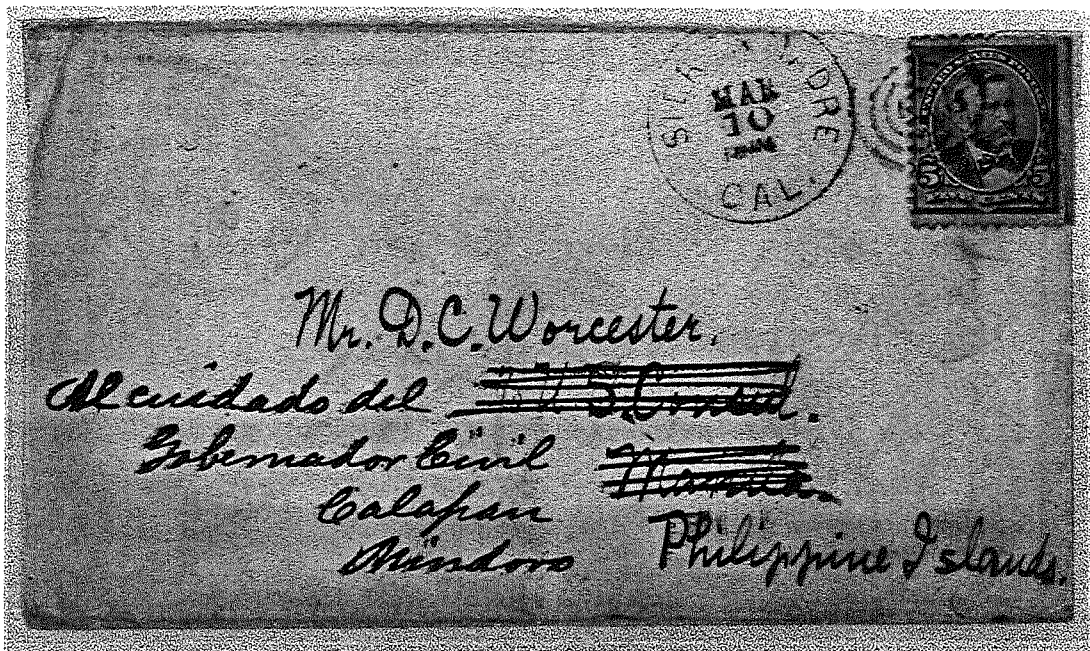 MAR
10
CAL.
5 5
Mr. D. C. Worcester.
Al cuidado del U.S. Consul.
Gobernador Civil Manila.
Calapan
Mindoro
Philippine Islands.